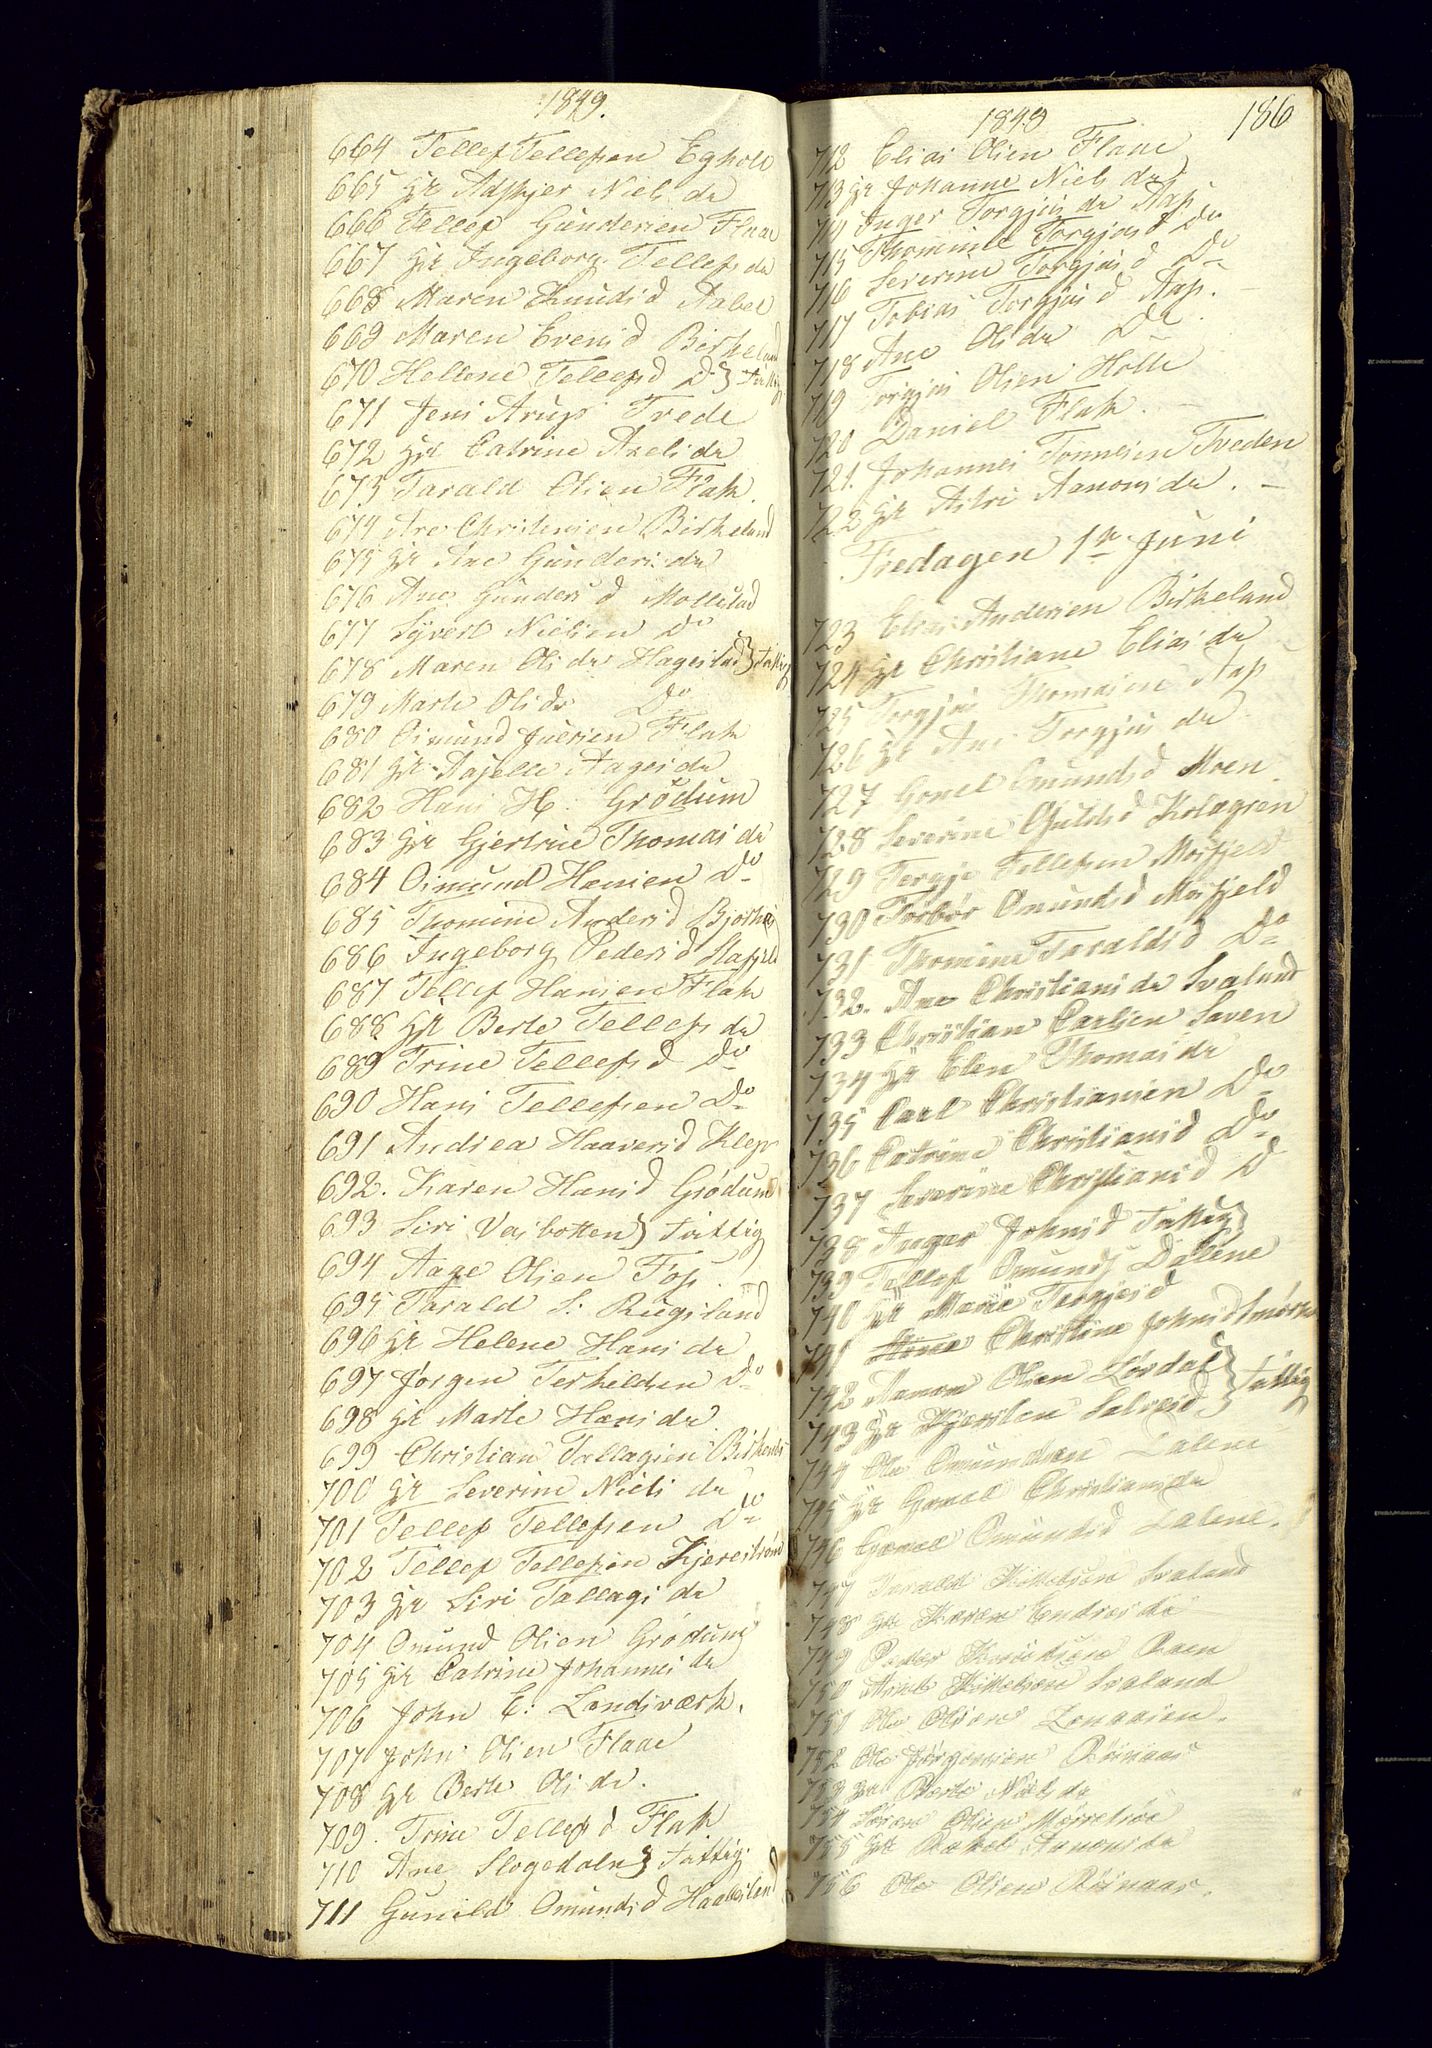 1849.
664 Tellef Tellefsen Egholt
665 gt Aaskjer Niels da
666 Tellef Gundersen Flaae
667 gt Ingeborg Tellefs da
668 Maren Knudsd Aabel
669 Maren Evensd Birkeland
670 Hellene Tellefsd Do } Fattig
671 Jens Arups Trede
672 gt Catrine Axels da
673 Tarald Olsen Flak.
674 Are Christensen Birkeland
675 gt Ane Gunders: da
676 Ane Gunders d Mollestad
677 Syvert Nielsen Do
678 Maren Ols da Hagestad } Fattig
679 Marte Ols da Do
680 Osmund Juersen Flak
681 gt Aaselle Aages da
682 Hans H: Grödum
683 gt Gjertrue Thomas da
684 Osmund Hansen Do
685 Thomine Andersd
686 Ingeborg Pedersd
687 Tellef Hansen Flak
688 gt Berte Tellefs da
689 Trine Tellefsd Do
690 Hans Tellefsen Do
691 Andrea Haaversd Klep
692. Karen Hansd Grödum
693 Siri Vasbotten } Fattig
694 Aage Olsen Fos.
695 Tarald S: Rugsland
696 gt Helene Hans da
697 Jörgen Terkeldsen Do
698 gt Marte Hans da
699 Christian Tallagsen
700 gt Severine Niels da
701 Tellef Tellefsen Do
702 Tellef Tellefsen Kjerestrand
703 gt Siri Tallags da
704 Omund Olsen Grödum
705 gt Catrine Johannes da
706 John E: Landsværk.
707 John Olsen Flaae
708 gt Berte Ols da.
709. Trine Tellefsd Flak
710 Ane Slogedaln } Fattig.
711 Gunild Omundsd
1849 186
712 Elias Olsen Flaae
713 gt Johanne Niels da
714 Inger Torgjus da Aas
715 Thomine Torgjusd Do
716 Severine Torgjusd Do
717 Tobias Torgjus d Aas.
718 Ane Ols da Do
719 Torgjus Olsen Holte
720 Daniel Flak.
721. Johannes Tönnesen Tveden
722 gt Astri Aanons da.
Fredagen 1te Juni
723 Elias Andersen Birkeland
724 gt Christiane Elias da
725 Torgjus Thomasen Aas
726 gt Ane Torgjus da
727 Gonel Omundsd Moen.
728 Severine
729 Tergje Tellefsen Mosfjeld
730 Torbör Omundsd Mosfjeld
731 Thomine Taraldsd Do
732. Ane Christians da Svaland
733 Christian Carlsen Saven
734 gt Elen Thomas da
735 Carl Christiansen Do
736 Catrine Christiansd Do
737 Severine Christiansd D
738 Inger Johnsd Fattig }
739 Tellef Omunds Dalene
740 gt Marie Tergjesd
741 Christine Johnsd
742 Aanon Olsen Lördal } Fattig
743 gt Kjersten Salvesd
744 Ole Omundsen Dalene
745 gt Gonel Christians da
746 Gonel Omundsd Dalene.
747 Tarald Kittelsen Svaland
748 gt Karen Endres da
749 Peder Knudsen Raen
750 Kittelsen Svaland
751 Ole Olsen
752 Ole Jörgensen Röinaas
753 gt Berte Niels da
754 Sören Olsen
755 gt Rakel Aanons da
756 Ole Olsen Röinaas.